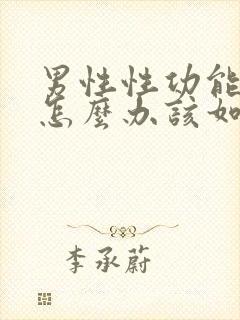 男性性功能
怎麼办該如
李承蔚